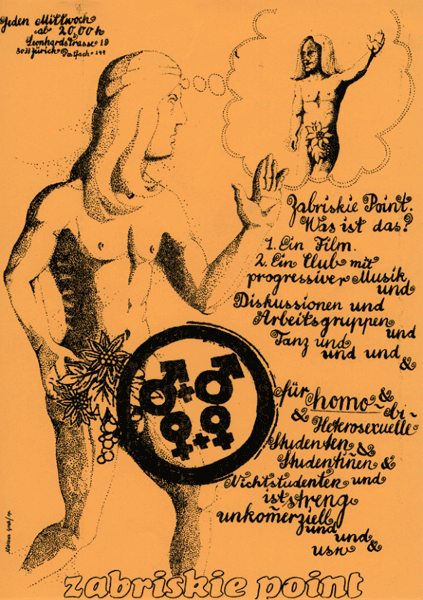 Jeden Mittwoch
ab 20,00 h
Leonhardstrasse 19
8033 Zürich Postfach
Zabriskie Point.
Was ist das?
1. Ein Film.
2. Ein Club mit
progressiver Musik
und
Diskussionen und
Arbeitsgruppen
und
Tanz und
und und &
für homo- &
& bi-
Heterosexuelle
Studenten &
& Studentinnen &
Nichtstudenten und
ist streng
unkomerziell
und und
usw &
zabriskie point